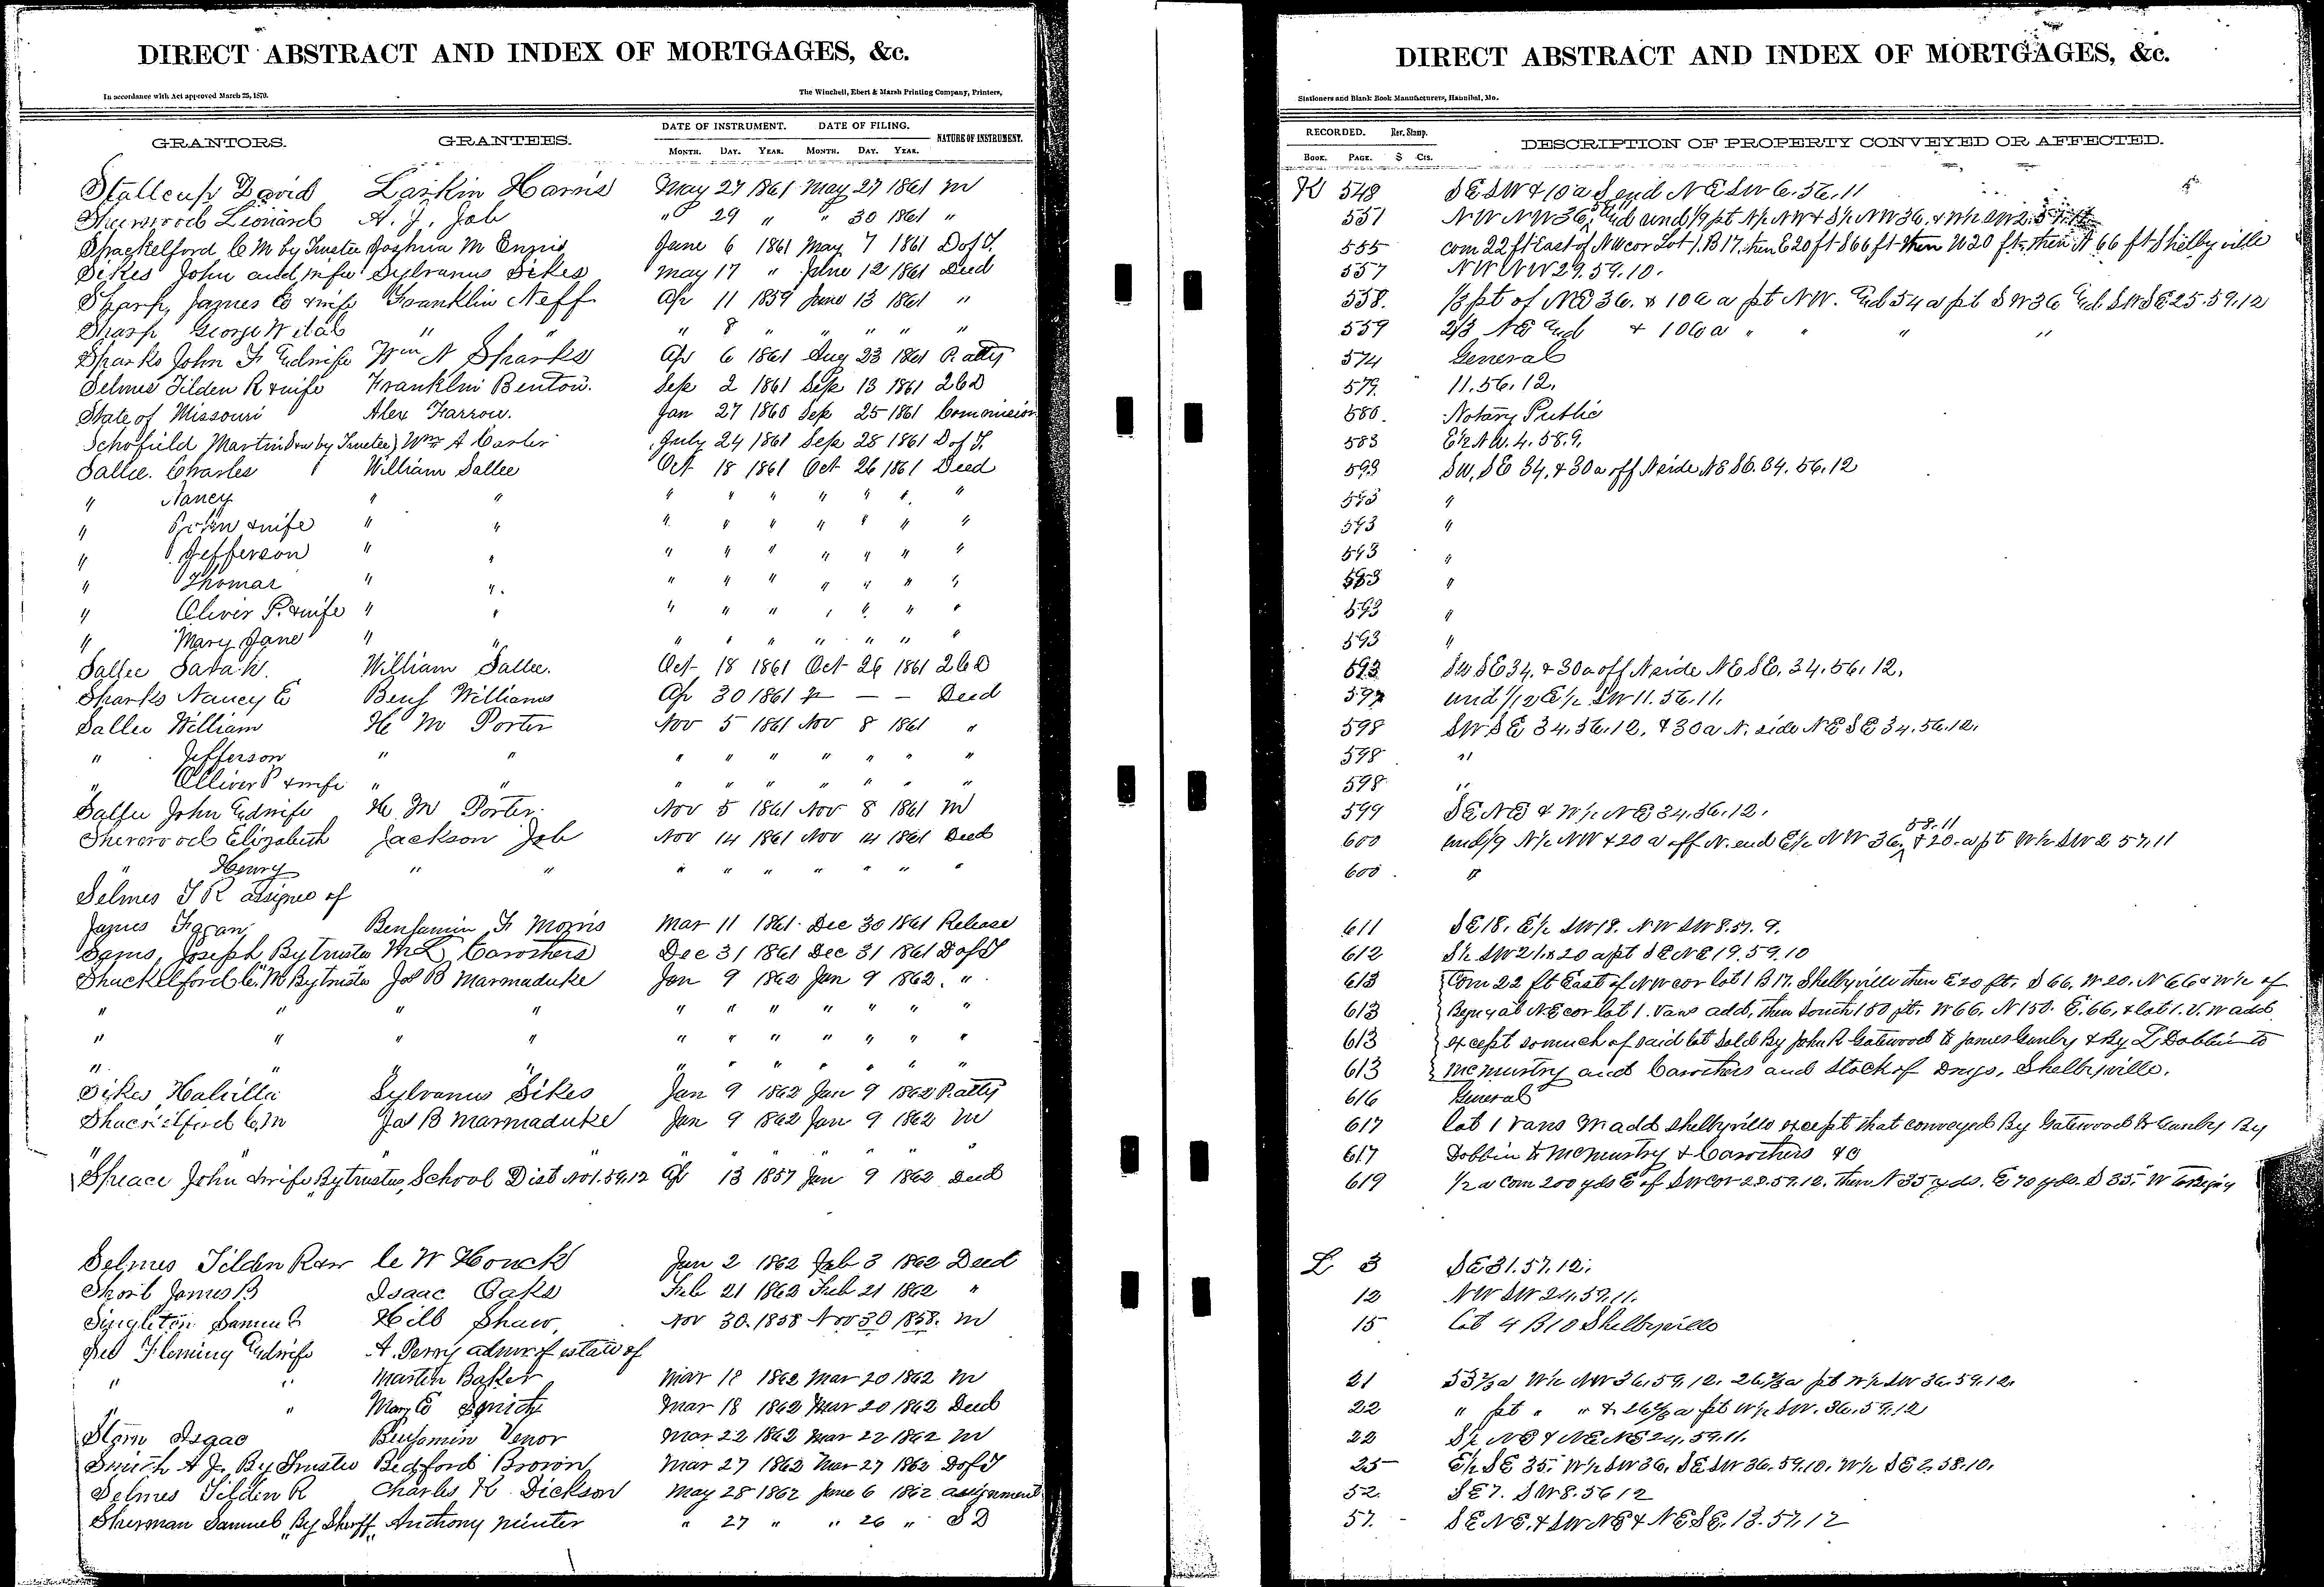 DIRECT ABSTRACT AND INDEX OF MORTGAGES, &c.
In accordance with Act approved March 25, 1870.
The Winchell, Ebert & Marsh Printing Company, Printers,
GRANTORS. GRANTEES. DATE OF INSTRUMENT. DATE OF FILING. NATURE OF INSTRUMENT.
MONTH. DAY. YEAR. MONTH. DAY. YEAR.
Stallcup David Larkin Harris May 27 1861 May 27 1861 M
Sherwood Leonard A. J. Job " 29 " " 30 1861 "
Shackelford C M by Trustee Joshua M Ennis June 6 1861 May 7 1861 D of T.
Sikes John and wife Sylvanus Sikes May 17 " June 12 1861 Deed
Sharp, James E & wife Franklin Neff Ap 11 1859 June 13 1861 "
Sharp George W et al " " 8 " " " " "
Sparks John F And wife Wm N Sparks Ap 6 1861 Aug 23 1861 P. atty
Selmes Tilden R & wife Franklin Benton. Sep 2 1861 Sep 13 1861 2 C D
State of Missouri Alex Farrow. Jan 27 1860 Sep 25 1861 Commission
Schofield Martin by Trustee Wm A Carter July 24 1861 Sep 28 1861 D of T.
Sallee. Charles William Sallee Oct 18 1861 Oct 26 1861 Deed
" Nancy " " " " " " " " "
" John & wife " " " " " " " " "
" Jefferson " " " " " " " " "
" Thomas " " " " " " " " "
" Oliver P. & wife " " " " " " " " "
" Mary Jane " " " " " " " " "
Sallee Sarah. William Sallee. Oct 18 1861 Oct 26 1861 2 C D
Sparks Nancy E Benj Williams Ap 30 1861 — — Deed
Sallee William H M Porter Nov 5 1861 Nov 8 1861 "
" Jefferson " " " " " " " " "
" Olliver P & wife " " " " " " " " "
Sallee John And wife H. M Porter. Nov 5 1861 Nov 8 1861 M
Sherwood Elizabeth Jackson Job Nov 14 1861 Nov 14 1861 Deed
" Henry " " " " " " " " "
Selmes T R assignee of
James Foran Benjamin F Morris Mar 11 1861. Dec 30 1861 Release
Sams, Joseph By trustee M L Carothers Dec 31 1861 Dec 31 1861 D of T
Shackelford C. M By trustee Jas B Marmaduke Jan 9 1862 Jan 9 1862. "
" " " " " " " " " " "
" " " " " " " " " " "
" " " " " " " " " " "
Sikes Sylvanus Sikes Jan 9 1862 Jan 9 1862 P. atty
Shackelford C M Jas B Marmaduke Jan 9 1862 Jan 9 1862 M
" " " " "
John & wife By trustee, School Dist No 1. 59, 12 Ap 13 1857 Jan 9 1862 Deed
Selmes Tilden R & w W Houck Jan 2 1862 Feb 3 1862 Deed
James B Isaac Oaks Feb 21 1862 Feb 21 1862 "
Singleton Samuel Shaw, Nov 30. 1858 Nov 30 1858. M
Fleming And wife A. Perry admr of estate of
" " Martin Baker Mar 18 1862 Mar 20 1862 M
" " Mary E Smith Mar 18 1862 Mar 20 1862 Deed
Isaac Benjamin Venor Mar 22 1862 Mar 22 1862 M
Smith A J. By Trustee Bedford Brown Mar 27 1862 Mar 27 1862 D of T
Selmes Tilden R Charles K Dickson May 28 1862 June 6 1862 assignment
Sherman Samuel, By Sheriff, Anthony Minter " 27 " " 26 " S D
DIRECT ABSTRACT AND INDEX OF MORTGAGES, &c.
Stationers and Blank Book Manufacturers, Hannibal, Mo.
RECORDED. Rev. Stamp. DESCRIPTION OF PROPERTY CONVEYED OR AFFECTED.
BOOK. PAGE. $ Cts.
K 548 SE SW & 10 a S end NE SW 6. 56. 11
551 NW NW 36,
555 Com 22 ft East of NW cor Lot 1. B 17. then E 20 ft S 66 ft then W 20 ft, then N 66 ft Shelbyville
557 NW NW 29. 59. 10.
558. 1/3 pt of NE 36. & 106 a pt NW. And 54 a pt SW 36 And SW SE 25. 59. 12
559 2/3 NE And & 106 a " " " "
574 General
579. 11. 56. 12.
580. Notary Public
583 E 1/2 N W. 4. 58. 9.
593 SW, SE 34, & 30 a off N side NE SE. 34. 56. 12
593 "
593 "
593 "
593 "
593 "
593 "
593 SW SE 34, & 30 a off N side NE SE. 34. 56, 12.
597 und 1/12 E 1/2 SW 11. 56. 11.
598 SW SE 34. 56. 12, & 30 a N. side NE SE 34. 56. 12.
598 "
598 "
599 SE NE & W 1/2 NE 34. 56. 12.
58. 11
600 und 1/9 N 1/2 NW & 20 a off N. end E 1/2 NW 36, & 20. a pt W 1/2 SW 2 57. 11
600. "
611 SE 18. E 1/2 SW 18. NW SW 8. 57. 9.
612 S 1/2 SW 21. & 20 a pt SE NE 19. 59. 10
613 Com 22 ft East of NW cor lot 1 B 17. Shelbyville then E 20 ft. S 66. W 20. N 66 & W 1/2 of
613 at NE cor lot 1. Vans add, then South 150 ft. W 66. N 150. E. 66, & lot 1. V. W add
613 except so much of said lot Sold By John R Gatewood to James Gunby & By L Dobbin to
613 McMurtry and Carothers and Stock of Drugs, Shelbyville.
616 General
617 Lot 1 Vans M add Shelbyville except that conveyed By Gatewood to Gunby By
617 Dobbin to McMurtry & Carothers &C
619 1/2 a Com 200 yds E of SW cor 28. 59. 12. then N 35 yds. E 70 yds. S 35. W to
L 3 SE 31. 57. 12.
12 NW SW 24. 59. 11.
15 Lot 4 B 10 Shelbyville
21 53 1/3 a W 1/2 NW 36, 59, 12. 26 2/3 a pt W 1/2 SW 36. 59. 12.
22 " pt " " & 26 2/3 a pt W 1/2 SW. 36. 59. 12
22 S 1/2 NE & NE NE 24. 59. 11.
25 E 1/2 SE 35. W 1/2 SW 36, SE SW 36. 59. 10. W 1/2 SE 2. 58. 10.
52. SE 7. SW 8. 56 12
57. SE NE. & SW NE & NE SE. 13. 57. 12